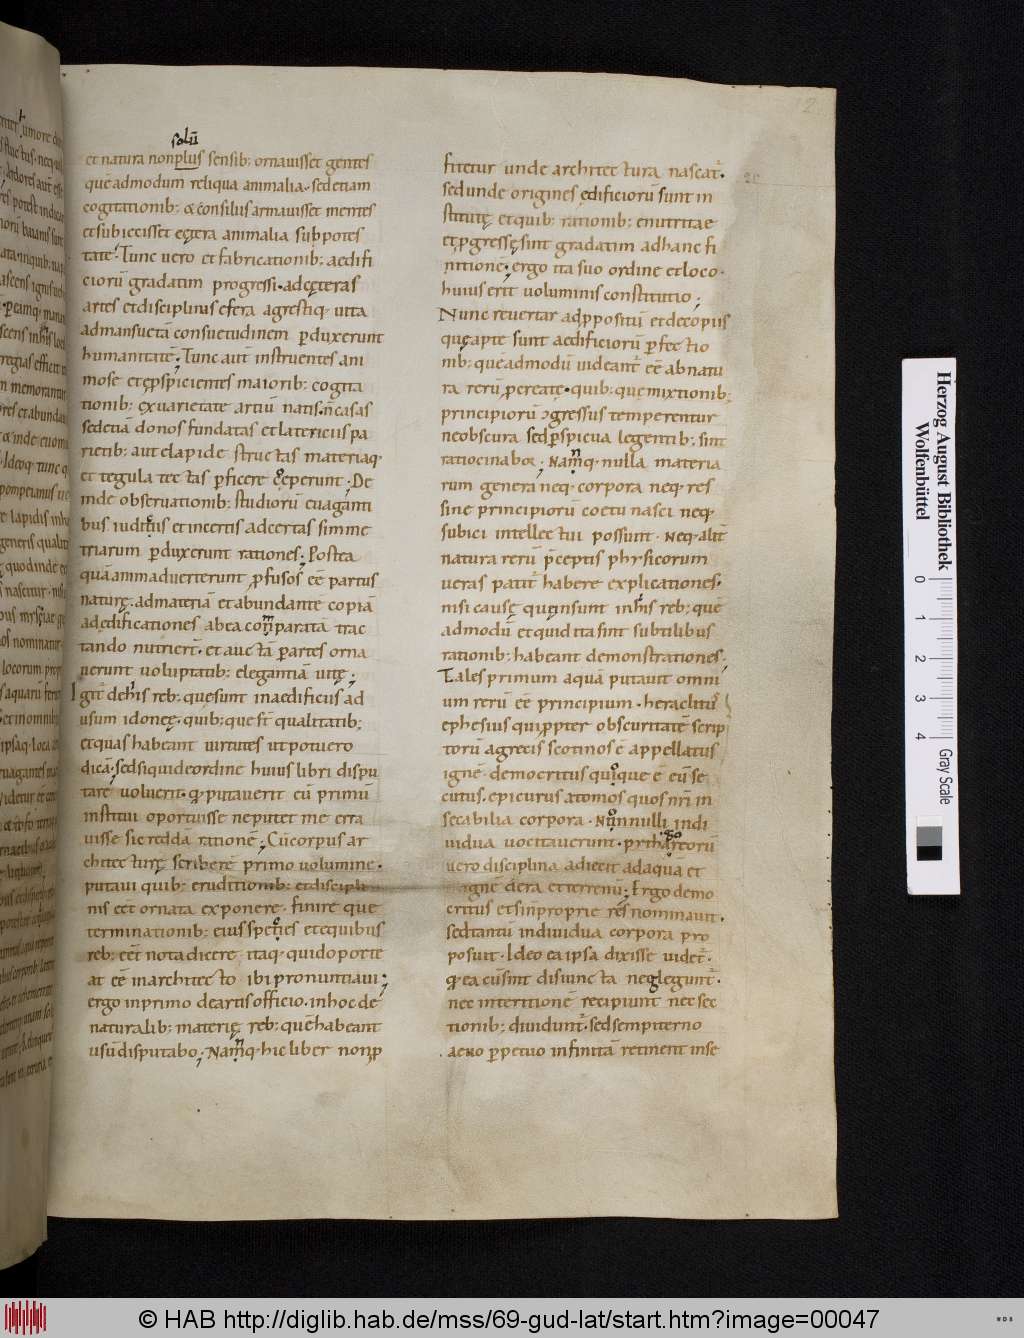 solū
et natura non plus sensib; ornauisset gentes
quēadmodum reliqua animalia. sed etiam
cogitationib; & consiliis armauisset mentes
et subiecisset cętera animalia sub potes
tate. Tunc uero et fabricationib; aedifi
ciorū gradatim progressi. ad cęteras
artes et disciplinas efera agrestiq; uita
ad mansuetā consuetudinem perduxerunt
humanitatē; Tunc aut instruentes ani
mose et prospicientes maiorib; cogita
tionib; ex uarietate artiū natis. n̄ casas
sed etiā domos fundatas et latericiis pa
rietib; aut e lapide structas materiaq;
et tegula tectas perficere ceperunt; De
inde obseruationib; studiorū euaganti
bus iudiciis et incertis ad certas simme
triarum perduxerunt rationes; Postea
quā animaduerterunt profusos eē partus
naturę. ad materiā et abundantē copiā
ad edificationes ab ea comparatā trac
tando nutrierт̄. et auctā per artes orna
uerunt uoluptatib; elegantiā uitę;
Igit de his reb; que sunt in aedificiis ad
usum idoneę. quib; que st̄ qualitatib;
et quas habeant uirtutes ut potuero
dicā; sed si quis de ordine huius libri dispu
tare uoluerit. q putauerit eū primū
institui oportuisse ne putet me erra
uisse sic reddā rationē; Cū corpus ar
chitecturę scriberē primo uolumine.
putaui quib; eruditionib; et discipli
nis eēt ornata exponere. finire que
terminationib; eius species et e quibus
reb; eēt nota dicere. itaq; quid oporte
at eē in architecto ibi pronuntiaui;
ergo in primo de artis officio. in hoc de
naturalib; materię reb; quē habeant
usū disputabo; Namq; hic liber non p
fitetur unde architectura nascat.
sed unde origines edificiorū sunt in
stitutę et quib; rationib; enutritae
et pgressę sunt gradatim ad hanc fi
nitionē. ergo ita suo ordine et loco.
huius erit uoluminis constitutio;
Nunc reuertar ad ppositū et de copiis
quę apte sunt aedificiorū perfectio
nib; quēadmodū uideant eē ab natu
ra rerū pcreatę. quib; que mixtionib;
principiorū ɔgressus temperentur
ne obscura sed pspicua legentib; sint
ratiocinabor; Namq; nulla materia
rum genera neq; corpora neq; res
sine principiorū coetu nasci neq;
subici intellectui possunt. Neq; alit
natura rerū p̄ceptis physicorum
ueras patit habere explicationes.
nisi causę que insunt in his reb; quē
admodū et quid ita sint subtilibus
rationib; habeant demonstrationes;
Tales primum aquā putauit omni
um rerū eē principium. heraclitus
ephesius qui ppter obscuritatē scrip
torū a grecis scotinos ē appellatus
ignē. democritus quique ē eū se
cutus. epicurus atomos quos nr̄i in
secabilia corpora. Nonnulli indi
uidua uocitauerunt. pythagoreorū
uero disciplina adiecit ad aquā et
ignē aera et terrenū; Ergo demo
critus etsi n̄ proprie res nominauit.
sed tantū indiuidua corpora pro
posuit. Ideo ea ipsa dixisse uidet.
q ea cū sint disiuncta neglegunt.
nec interitionē recipiunt nec sec
tionib; diuidunt. sed sempiterno
aeuo perpetuo infinitā retinent in se
Herzog August Bibliothek
Wolfenbüttel
0 1 2 3 4
Gray Scale
© HAB http://diglib.hab.de/mss/69-gud-lat/start.htm?image=00047